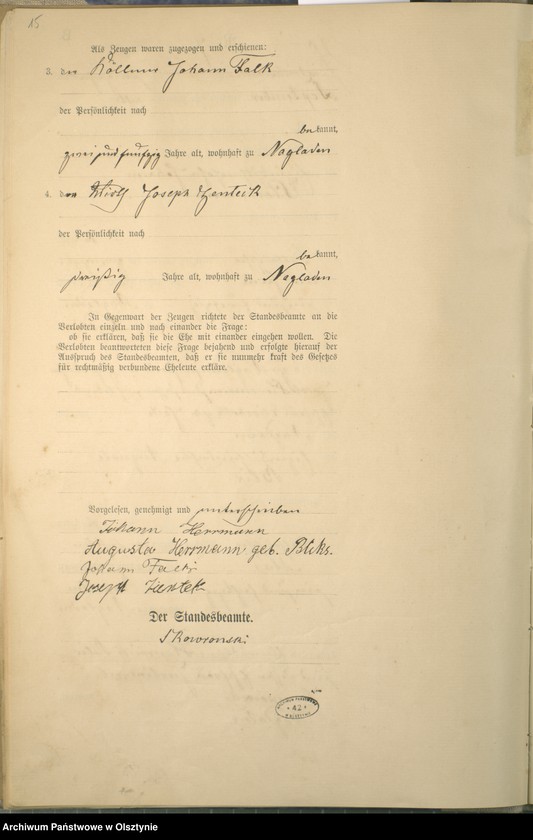 15
Als Zeugen waren zugezogen und erschienen:
3. der Köllmer Johann Falk
der Persönlichkeit nach
bekannt,
zweiundfünfzig Jahre alt, wohnhaft zu Nagladen
4. der Wirth Joseph Zientek
der Persönlichkeit nach
bekannt,
dreißig Jahre alt, wohnhaft zu Nagladen
In Gegenwart der Zeugen richtete der Standesbeamte an die
Verlobten einzeln und nach einander die Frage:
ob sie erklären, daß sie die Ehe mit einander eingehen wollen. Die
Verlobten beantworteten diese Frage bejahend und erfolgte hierauf der
Ausspruch des Standesbeamten, daß er sie nunmehr kraft des Gesetzes
für rechtmäßig verbundene Eheleute erkläre.
Vorgelesen, genehmigt und unterschrieben
Johann Herrmann
Augusta Herrmann geb. Bliks.
Johann Falk
Joseph Zientek
Der Standesbeamte.
Skowronski
Archiwum Państwowe w Olsztynie